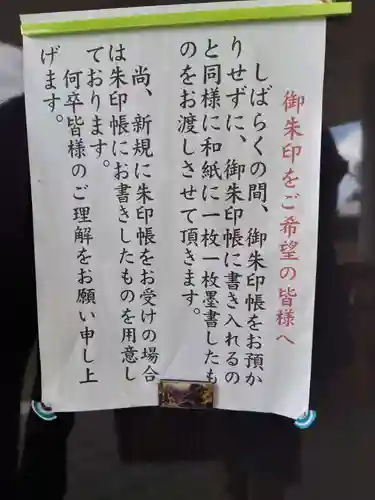 御朱印をご希望の皆様へ
しばらくの間、御朱印帳をお預か
りせずに、御朱印帳に書き入れるの
と同様に和紙に一枚一枚墨書したも
のをお渡しさせて頂きます。
尚、新規に朱印帳をお受けの場合
は朱印帳にお書きしたものを用意し
ております。
何卒皆様のご理解をお願い申し上
げます。